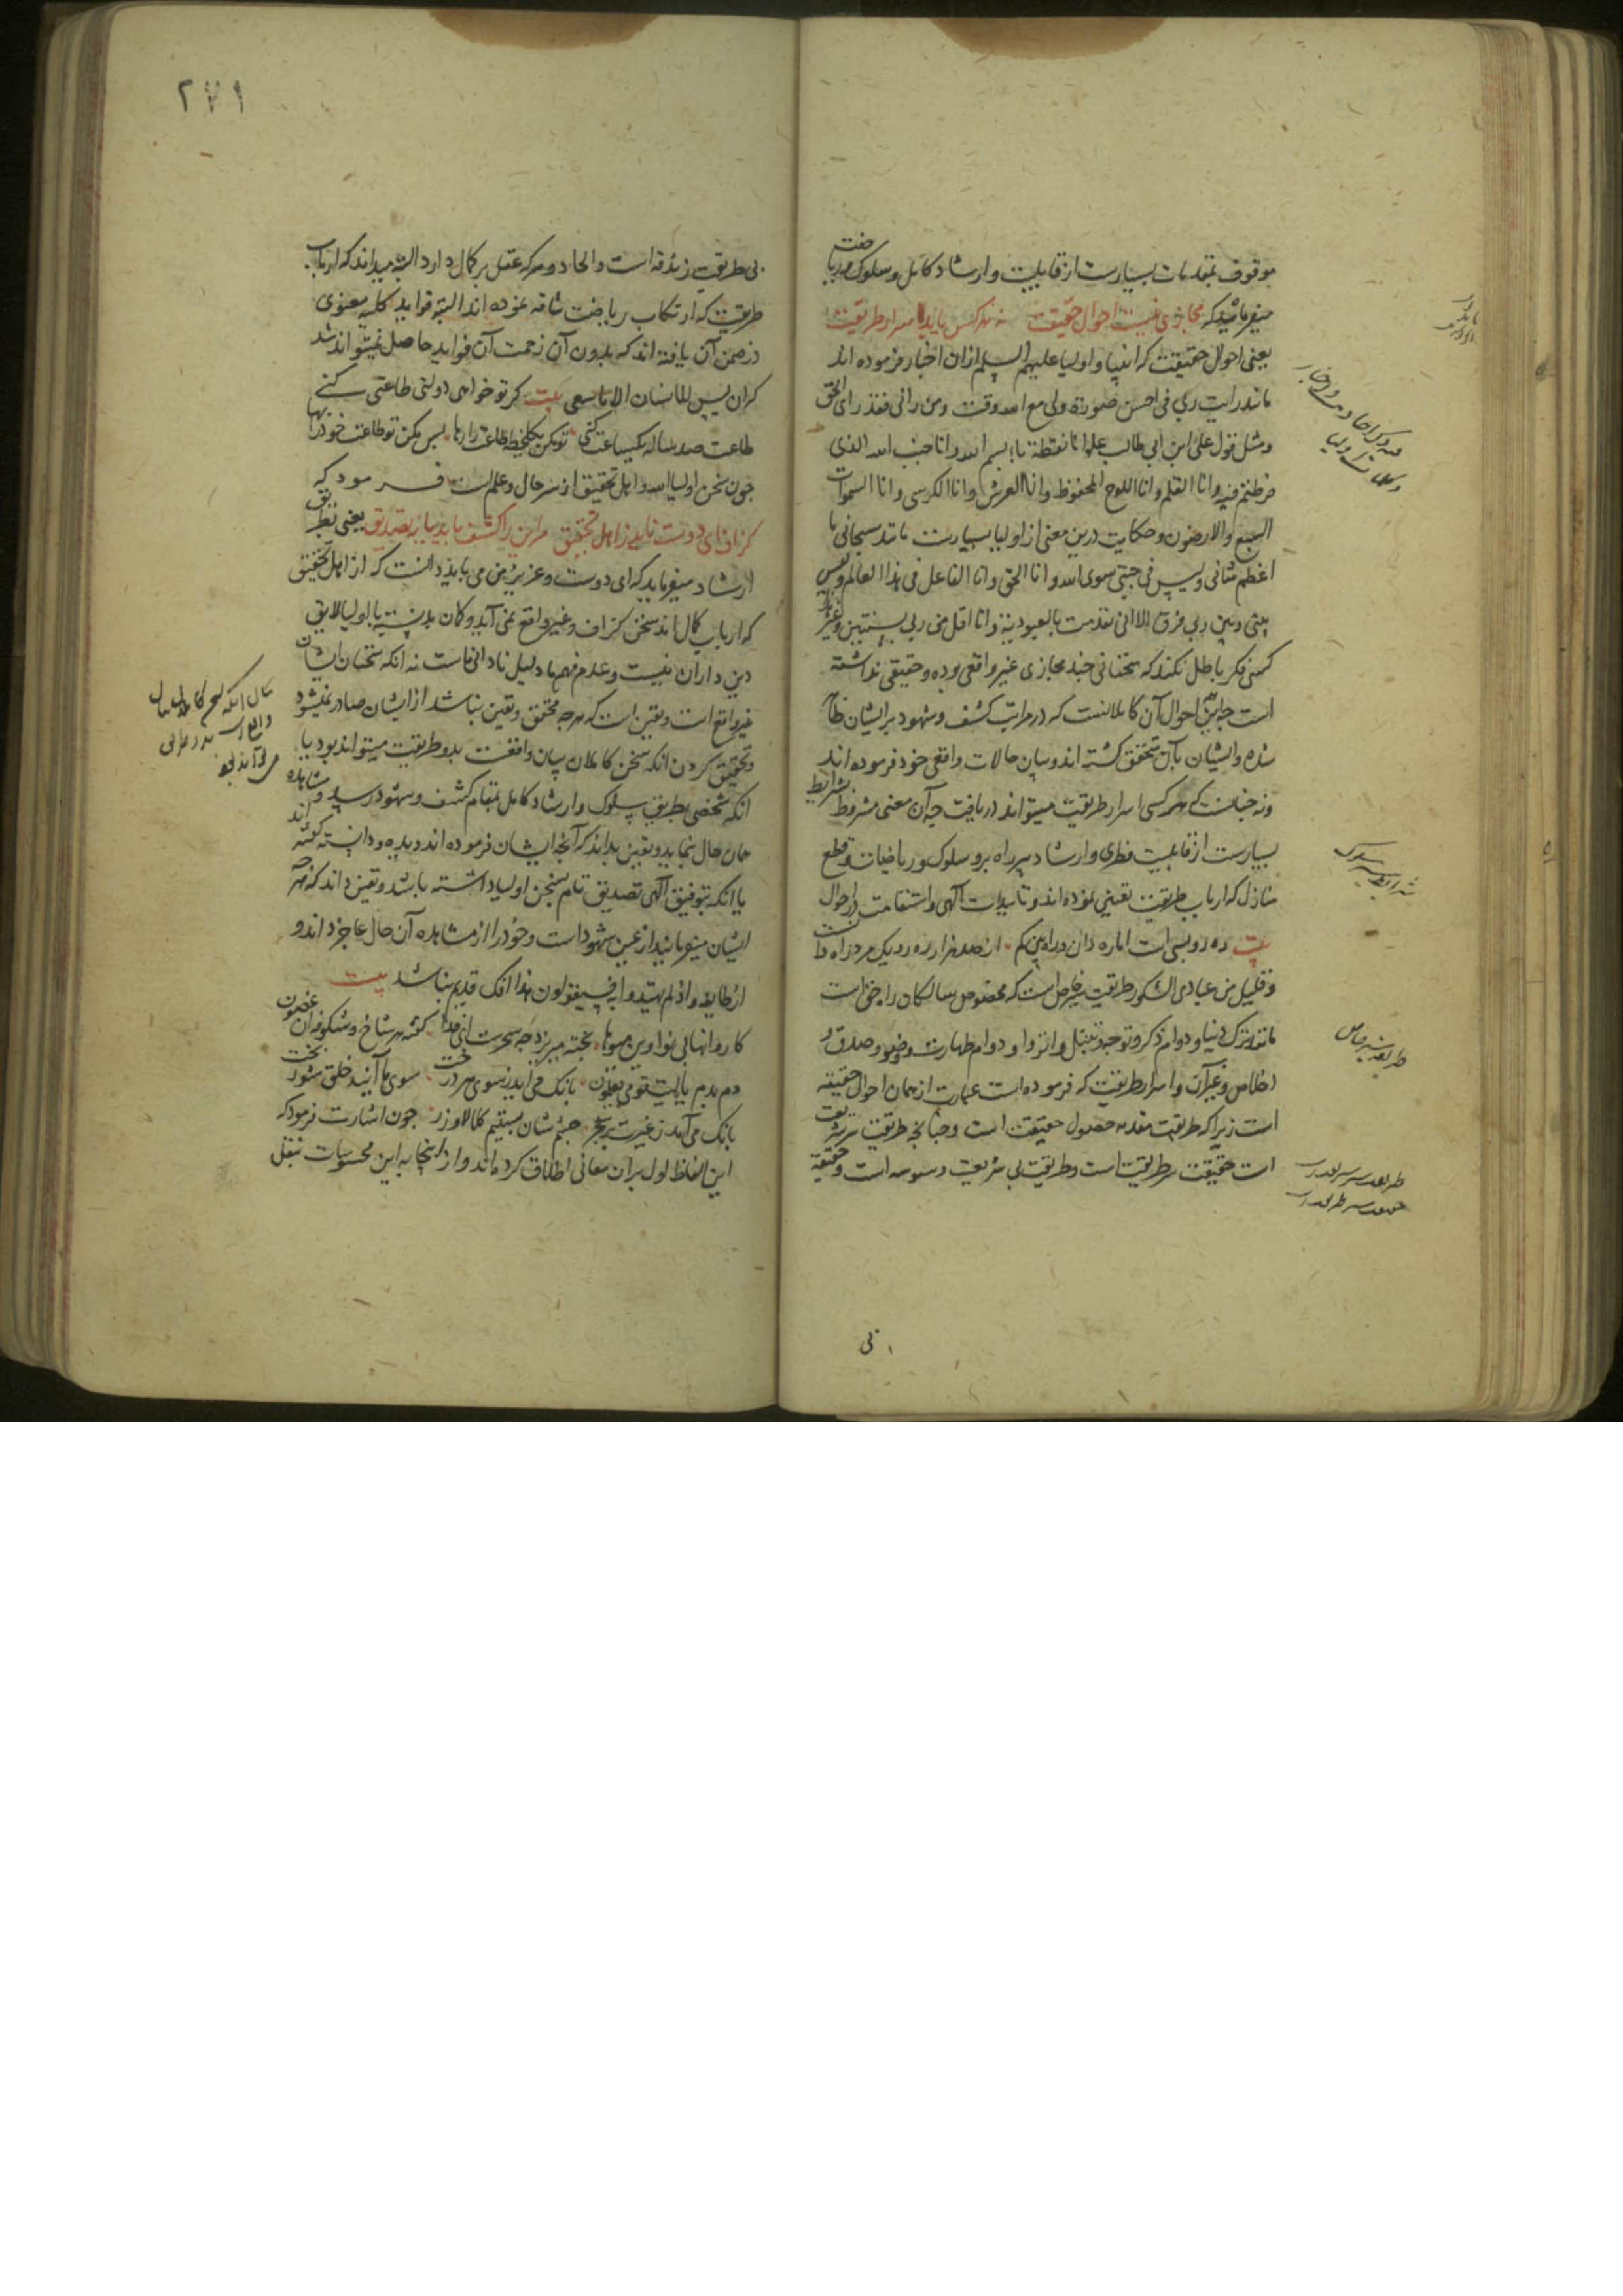 موقوف بمقدمات بسیارست از قابلیت و ارشاد کامل و سلوک و ریاضت
میفرمائید که مجازی نیست احوال حقیقت نه هر کس یابد اسرار طریقت
یعنی احوال حقیقت که انبیا و اولیا علیهم السلم ازان اخبار فرموده اند
مانند رایت ربی فی احسن صورة ولی مع الله وقت و من رانی فقد رای الحق
و مثل قول علی ابن ابی طالب علم انا نقطة باء بسم الله و انا جنب الله الذی
فرطتم فیه و انا القلم و انا اللوح المحفوظ و انا العرش و انا الکرسی و انا السموات
السبع و الارضون و حکایت درین معنی از اولیا بسیارست مانند سبحانی ما
اعظم شانی و لیس فی جبتی سوی الله و انا الحق و انا الفاعل فی هذا العالم و لیس
بینی و بین ربی فرق الا انی تقدمت بالعبودیة و انا اقل من ربی بسنتین و غیره
کسی فکر باطل نکند که سخنانی چند مجازی غیر واقعی بوده و حقیقی نداشته
است چه این احوال آن کاملانست که در مراتب کشف و شهود بر ایشان ظاهر
شده و ایشان بآن متحقق گشته اند و بیان حالات واقعی خود فرموده اند
و نه چنانست که هر کسی اسرار طریقت میتواند دریافت چه آن معنی مشروط بشرایط
بسیارست از قابلیت فطری و ارشاد پیر راه برو سلوک و ریاضیات و قطع
منازل که ارباب طریقت تعیین نموده اند و تاییدات الهی و استقامت در احوال
بیت ره رو بسی است اما ره دان در راه بین کم از صد هزار ره رو یک مرد راه دانست
و قلیل من عبادی الشکور طریقت خاص است که مخصوص سالکان راه حق است
مانند ترک دنیا و دوام ذکر و توجه و تبتل و انزوا و دوام طهارت و وضو و صدق و
اخلاص و غیر آن و اسرار طریقت که فرموده است عبارت از همان احوال حقیقة
است زیرا که طریقت مقدمه حصول حقیقت است و چنانچه طریقت سر شریعت
است حقیقت سر طریقت است و طریقت بی شریعت وسوسه است و حقیقة
شرایط سلوک
طریقت خاص
طریقت سر شریعت
حقیقت سر طریقت
بی
۲۷۱
بی طریقت زندقه است و الحاد و هر که عقل بر کمال دارد البته میداند که ارباب
طریقت که ارتکاب ریاضت شاقه نموده اند البته فواید کلیه معنوی
در ضمن آن یافته اند که بدون آن زحمت آن فواید حاصل نمیتواند شد
کران لیس للانسان الا ما سعی بیت کر تو خواهی دولتی طاعتی کنی
طاعت صد ساله یکساعت کنی تو مکن یکلحظه طاعت را رها پس مکن تو طاعت خود را بها
چون سخن اولیاء الله و اهل تحقیق از سر حالی و علم است فرمود که
کزافی ای دوست ناید ز اهل تحقیق مر این را کشف باید یا بتصدیق یعنی بطریق
ارشاد میفرماید که ای دوست و عزیز من می باید دانست که از اهل تحقیق
که ارباب کمال اند سخن کزاف و غیر واقع نمی آید و کمان بد نسبت با اولیا لایق
دین داران نیست و عدم فهم ما دلیل نادانی ماست نه آنکه سخنان ایشان
غیر واقع است و یقین است که هر چه محقق و یقین نباشد از ایشان صادر نمیشود
و تحقیق کردن آنکه سخن کاملان بیان واقعست بدو طریقت میتواند بود یا
آنکه شخصی بطریق سلوک و ارشاد کامل بمقام کشف و شهود رسد و مشاهده
همان حال نماید و یقین بداند که آنچه ایشان فرموده اند دیده و دانسته گفته اند
یا آنکه بتوفیق آلهی تصدیق تام بسخن اولیا داشته باشد و یقین داند که هر چه
ایشان میفرمایند از عین شهود است و خود را از مشاهده آن حال عاجز داند و
از طایفه و اذ لم یهتدوا به فسیقولون هذا افک قدیم نباشد بیت
کاروانها بی نوا وین میوها پخته میریزد چه سحرست ای خدا گفته هر شاخ و شکوفه آن غصون
دم بدم یا لیت قومی یعلمون بانک می آید ز سوی هر درخت سوی ما آئید خلق شور بخت
بانک می آمد ز غیرت بر شجر چشم شان بستیم کلا لا وزر چون اشارت فرمود که
این الفاظ اول بر آن معانی اطلاق کرده اند و از اینجا به این محسوسات بنقل